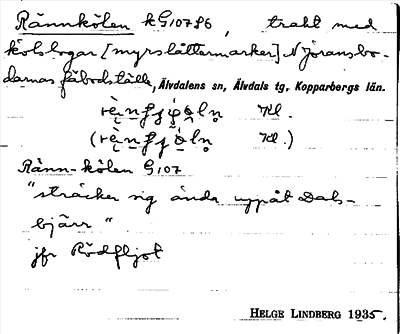 Rännkölen kG10786, trakt med
kölslogar [myrslåttermarker] N Jöransbo-
darnas fäbodställe, Älvdalens sn, Älvdals tg, Kopparbergs län.
Kl.
( Kl.)
Ränn-kölen G107
"sträcker sig ända uppåt Dals-
bjärr"
jfr Rödfljot
HELGE LINDBERG 1935.